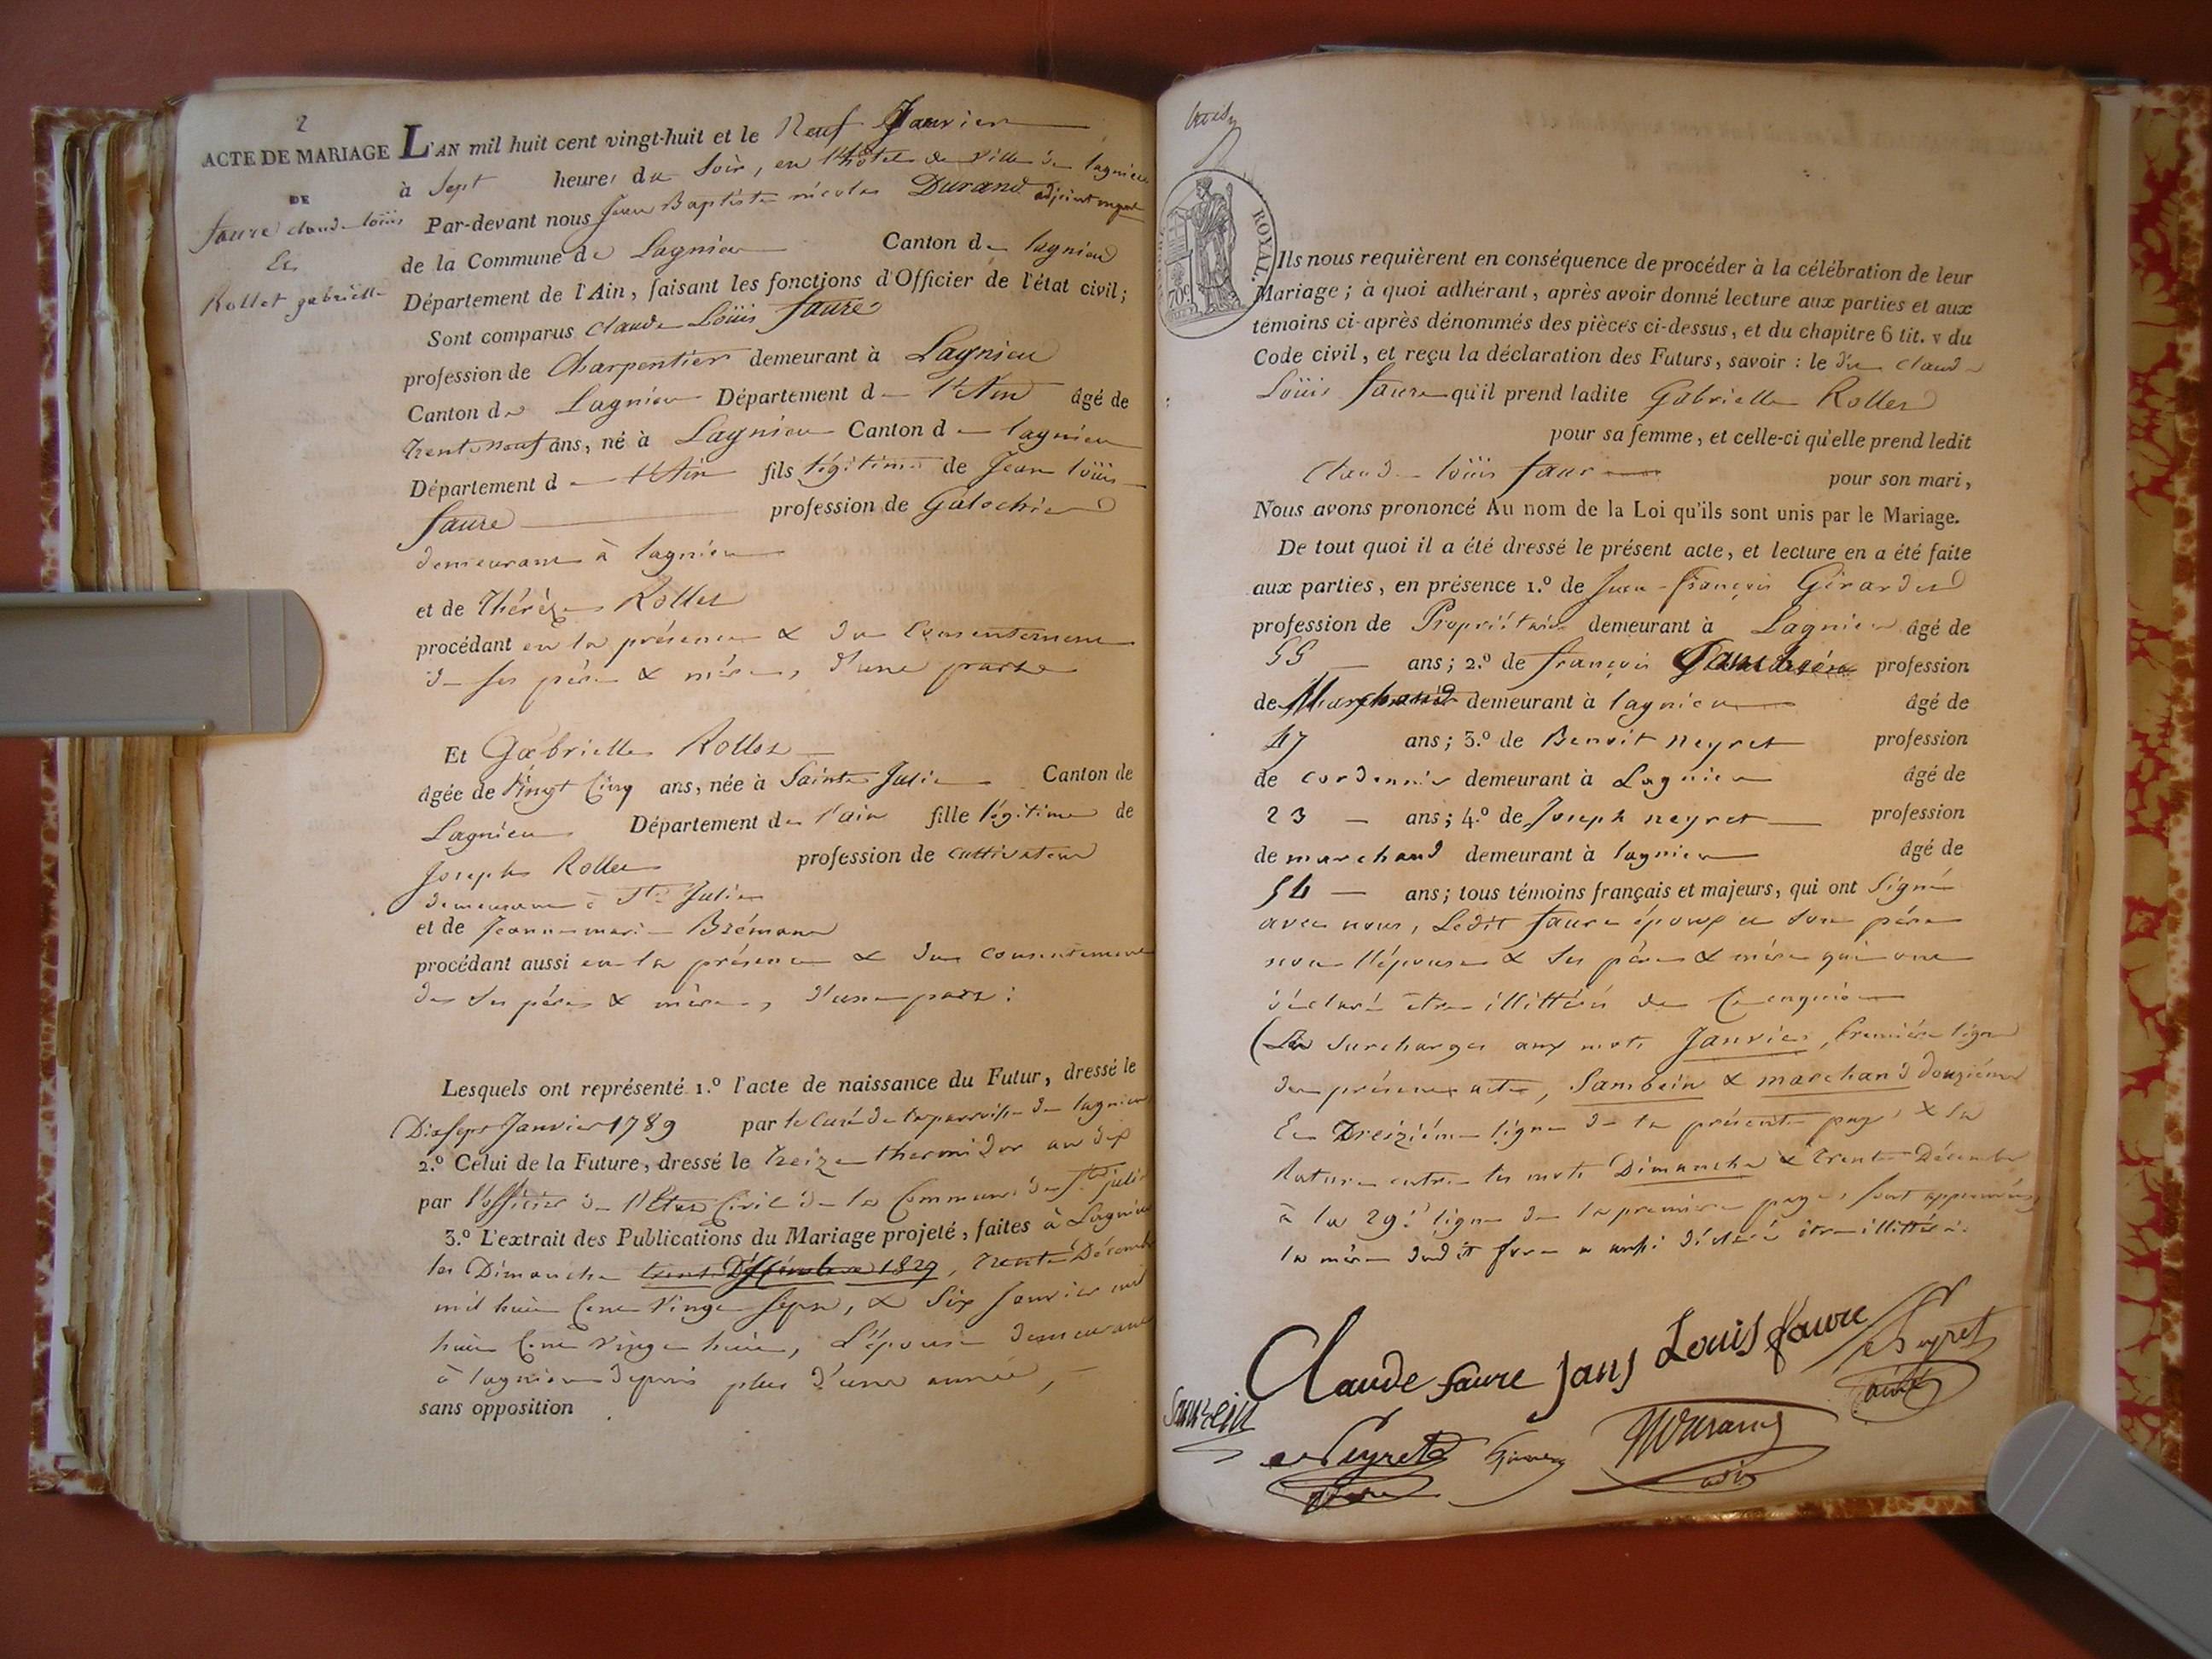 2
ACTE DE MARIAGE
DE
faure claude loüis
Et
Rollet gabrielle
L'AN mil huit cent vingt-huit et le Neuf Janvier
à Sept heures du Soir, en l'hôtel de Ville de lagnieu
Par-devant nous Jean Baptiste nicolas Durand adjoint
de la Commune de Lagnieu Canton de lagnieu
Département de l'Ain, faisant les fonctions d'Officier de l'état civil;
Sont comparus Claude Loüis faure
profession de Charpentier demeurant à Lagnieu
Canton de Lagnieu Département de l'Ain âgé de
trente neuf ans, né à Lagnieu Canton de lagnieu
Département de l'Ain fils légitime de Jean loüis
faure profession de Galochier
demeurant à lagnieu
et de Thérèze Rollet
procédant en la présence & du Consentement
de ses père & mère, d'une part
Et Gabrielle Rollet
âgée de Vingt Cinq ans, née à Sainte Julie Canton de
Lagnieu Département de l'ain fille légitime de
Joseph Rollet profession de cultivateur
demeurant à Ste Julie
et de Jeanne marie Brémand
procédant aussi en la présence & du consentement
de ses père & mère, d'une part:
Lesquels ont représenté 1.º l'acte de naissance du Futur, dressé le
Dix sept Janvier 1789 par le Curé de la parroisse de lagnieu
2.º Celui de la Future, dressé le treize thermidor an dix
par l'officier de l'Etat Civil de la Commune de Ste julie
3.º L'extrait des Publications du Mariage projeté, faites à Lagnieu
les Dimanche trente Décembre 1829, trente Décembre
mil huit Cent Vingt Sept, & Six Janvier mil
huit Cent Vingt huit, L'épouse demeurant
à lagnieu depuis plus d'une année,
sans opposition
trois
ROYAL.
70c
Ils nous requièrent en conséquence de procéder à la célébration de leur
Mariage; à quoi adhérant, après avoir donné lecture aux parties et aux
témoins ci-après dénommés des pièces ci-dessus, et du chapitre 6 tit. v du
Code civil, et reçu la déclaration des Futurs, savoir: le dit Claude
Loüis faure qu'il prend ladite Gabrielle Rollet
pour sa femme, et celle-ci qu'elle prend ledit
Claude loüis faure pour son mari,
Nous avons prononcé Au nom de la Loi qu'ils sont unis par le Mariage.
De tout quoi il a été dressé le présent acte, et lecture en a été faite
aux parties, en présence 1.º de Jean-françois Girardet
profession de Propriétaire demeurant à Lagnieu âgé de
55 ans; 2.º de françois profession
de Marchand demeurant à lagnieu âgé de
47 ans; 3.º de Benoit Neyret profession
de cordonnier demeurant à Lagnieu âgé de
23 ans; 4.º de Joseph neyret profession
de marchand demeurant à lagnieu âgé de
54 ans; tous témoins français et majeurs, qui ont Signé
avec nous, Ledit faure époux et Son père
non l'épouse & Ses père & mère qui ont
déclaré être illittérés de Ce enquis
(Les Surcharges aux mots Janvier, première ligne
du présent acte, Sambein & marchand douzième
Et Treizième ligne de la présente page, & la
Rature entre les mots Dimanche & trente Décembre
à la 29e ligne de la première page, Sont approuvées
la mère dudit faure a aussi déclaré être illittérée.
Claude faure Jans Louis faure
Neyret
Neyret
Durand
adj